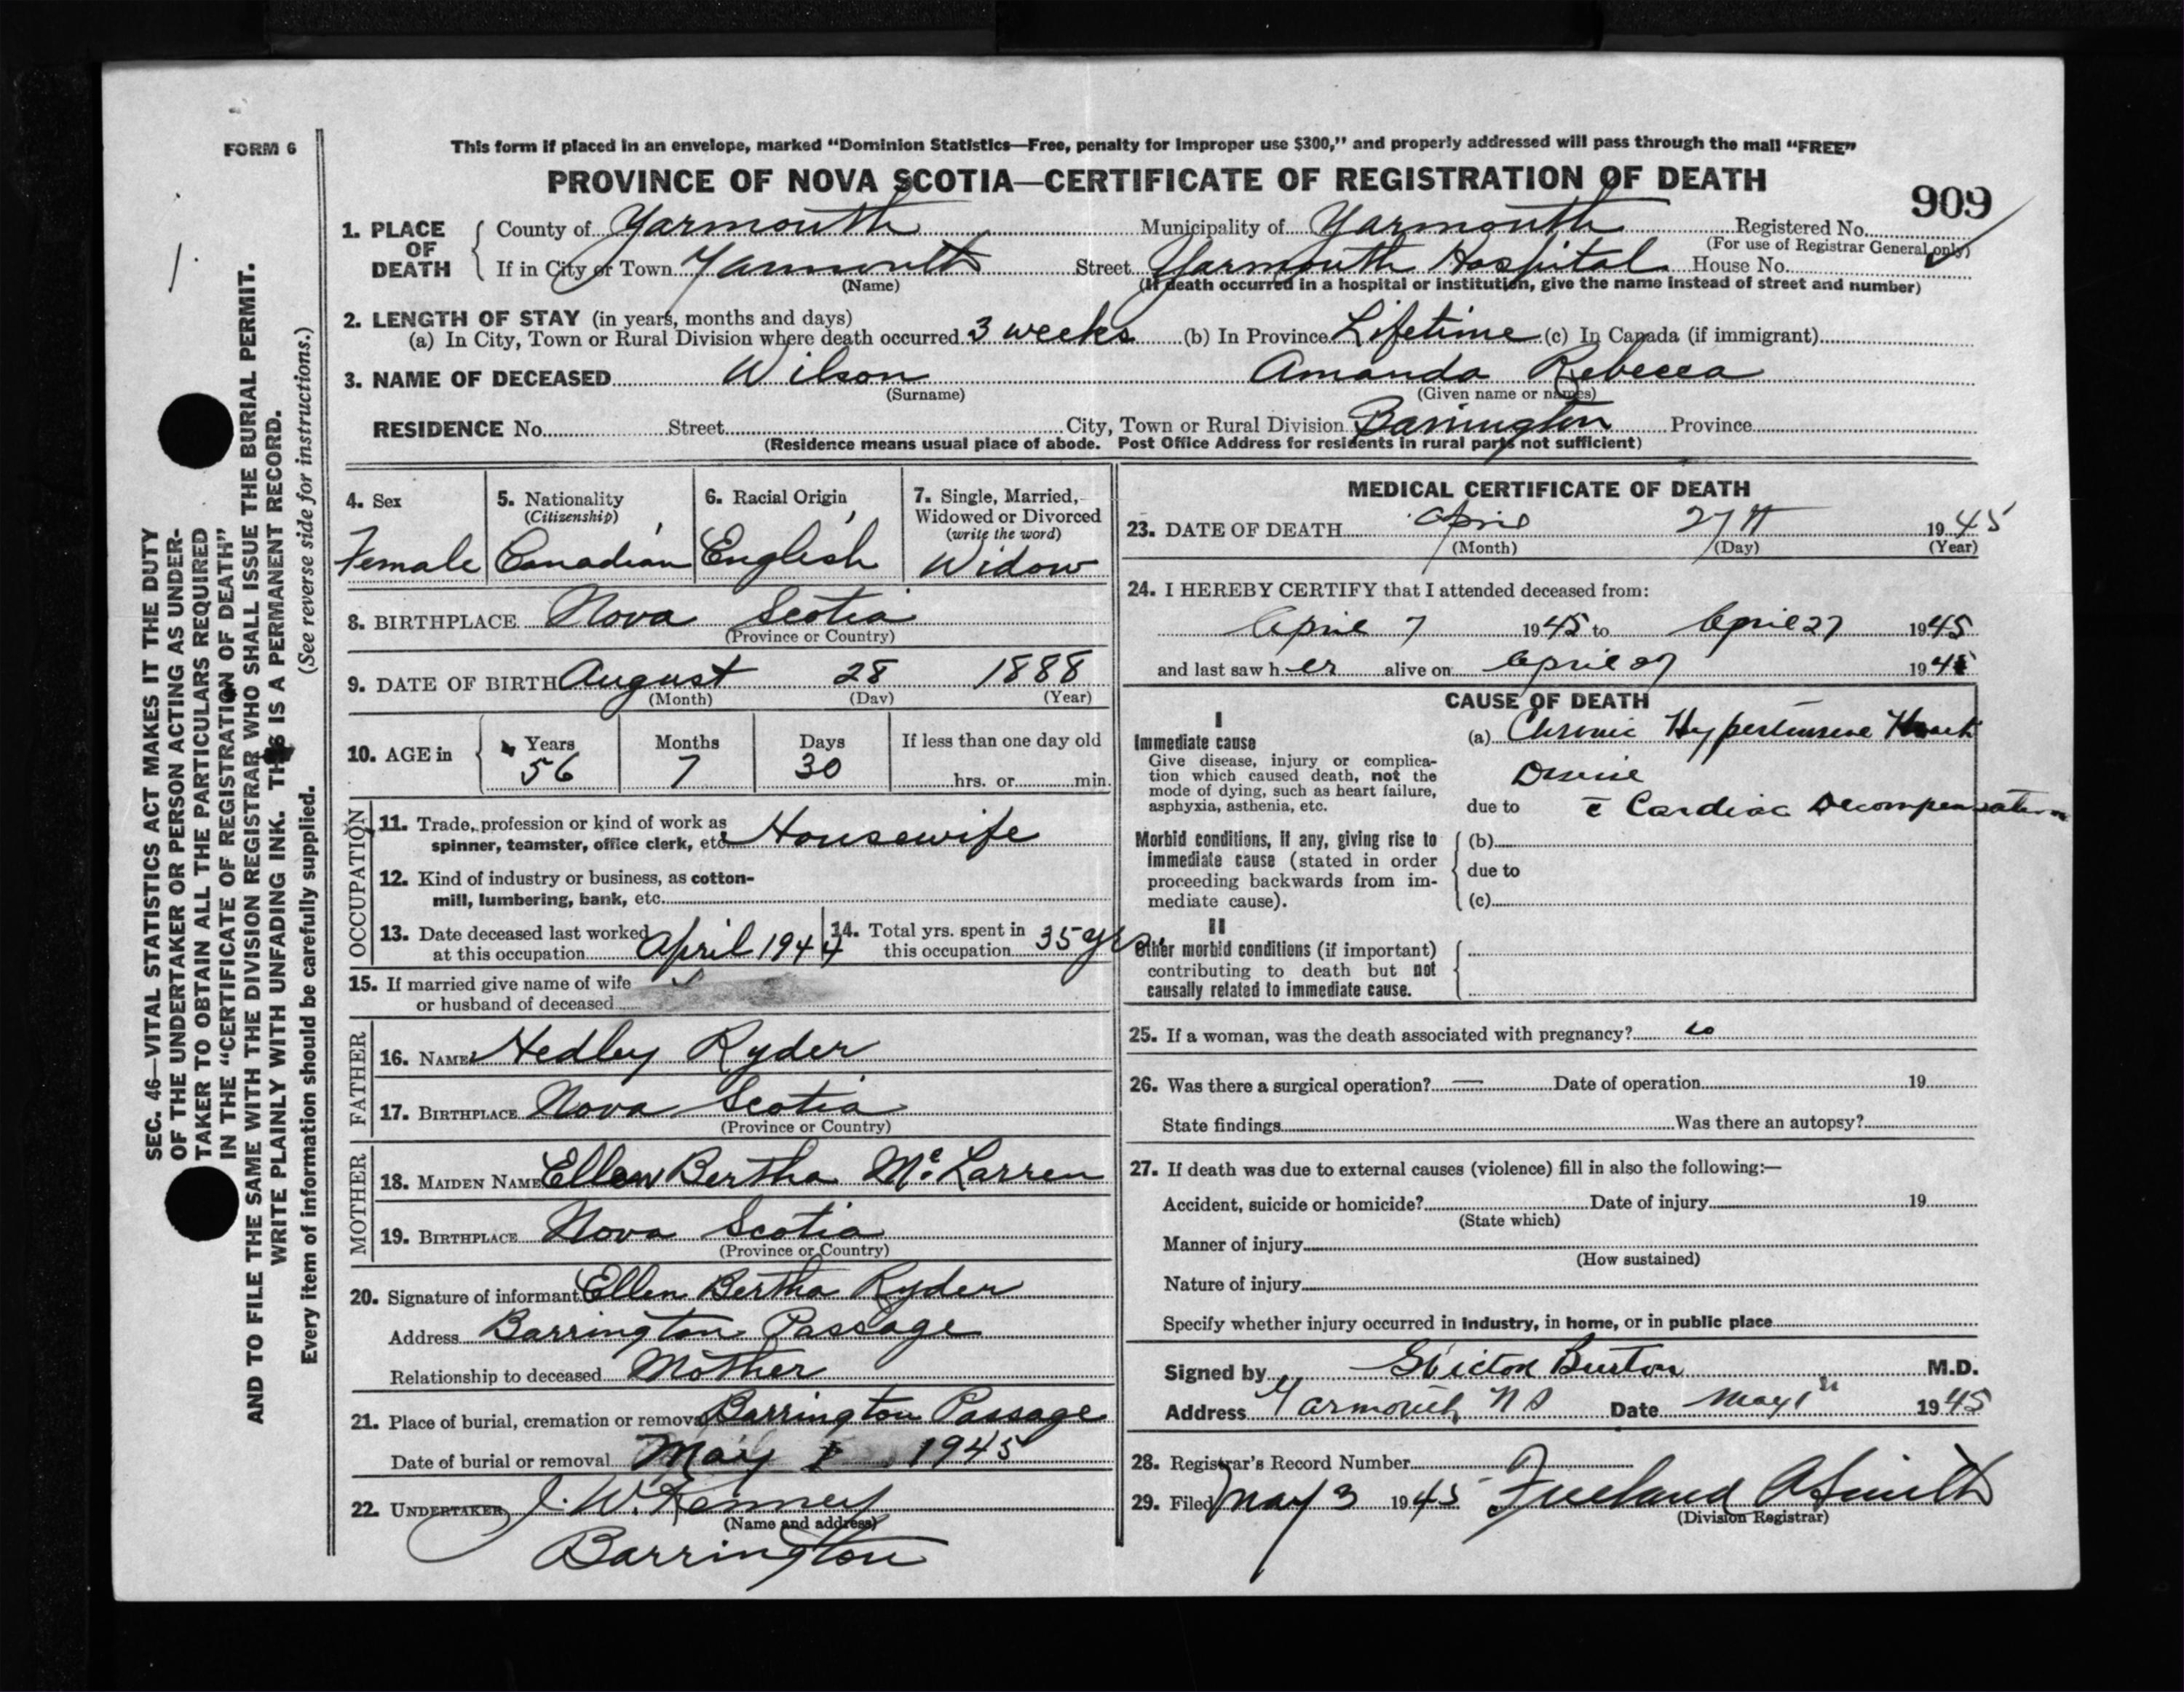 FORM 6
This form if placed in an envelope, marked “Dominion Statistics—Free, penalty for improper use $300,” and properly addressed will pass through the mail “FREE”
PROVINCE OF NOVA SCOTIA—CERTIFICATE OF REGISTRATION OF DEATH
909
1. PLACE OF DEATH County of Yarmouth Municipality of Yarmouth Registered No.
(For use of Registrar General only)
If in City or Town Yarmouth Street Yarmouth Hospital House No.
(Name) (If death occurred in a hospital or institution, give the name instead of street and number)
2. LENGTH OF STAY (in years, months and days)
(a) In City, Town or Rural Division where death occurred 3 weeks (b) In Province Lifetime (c) In Canada (if immigrant)
3. NAME OF DECEASED Wilson Amanda Rebecca
(Surname) (Given name or names)
RESIDENCE No. Street City, Town or Rural Division Barrington Province
(Residence means usual place of abode. Post Office Address for residents in rural parts not sufficient)
4. Sex
Female
5. Nationality
(Citizenship)
Canadian
6. Racial Origin
English
7. Single, Married,
Widowed or Divorced
(write the word)
Widow
8. BIRTHPLACE Nova Scotia
(Province or Country)
9. DATE OF BIRTH August 28 1888
(Month) (Day) (Year)
10. AGE in Years Months Days If less than one day old
56 7 30 hrs. or min.
OCCUPATION
11. Trade, profession or kind of work as
spinner, teamster, office clerk, etc. Housewife
12. Kind of industry or business, as cotton-
mill, lumbering, bank, etc.
13. Date deceased last worked
at this occupation April 1944
14. Total yrs. spent in
this occupation 35 yrs.
15. If married give name of wife
or husband of deceased
FATHER
16. NAME Hedley Ryder
17. BIRTHPLACE Nova Scotia
(Province or Country)
MOTHER
18. MAIDEN NAME Ellen Bertha McLarren
19. BIRTHPLACE Nova Scotia
(Province or Country)
20. Signature of informant Ellen Bertha Ryder
Address Barrington Passage
Relationship to deceased Mother
21. Place of burial, cremation or removal Barrington Passage
Date of burial or removal May 1 1945
22. UNDERTAKER J. W. Kenney
(Name and address)
Barrington
MEDICAL CERTIFICATE OF DEATH
23. DATE OF DEATH April 27th 1945
(Month) (Day) (Year)
24. I HEREBY CERTIFY that I attended deceased from:
April 7 1945 to April 27 1945
and last saw her alive on April 27 1945
CAUSE OF DEATH
I
Immediate cause
Give disease, injury or complica-
tion which caused death, not the
mode of dying, such as heart failure,
asphyxia, asthenia, etc.
(a) Chronic Hypertensive Heart
Disease
due to c̄ Cardiac Decompensation
Morbid conditions, if any, giving rise to
immediate cause (stated in order
proceeding backwards from im-
mediate cause).
(b)
due to
(c)
II
Other morbid conditions (if important)
contributing to death but not
causally related to immediate cause.
25. If a woman, was the death associated with pregnancy? no
26. Was there a surgical operation? — Date of operation 19
State findings Was there an autopsy?
27. If death was due to external causes (violence) fill in also the following:—
Accident, suicide or homicide? Date of injury 19
(State which)
Manner of injury
(How sustained)
Nature of injury
Specify whether injury occurred in industry, in home, or in public place
Signed by G Victor Burton M.D.
Address Yarmouth NS Date May 1st 1945
28. Registrar's Record Number
29. Filed May 3 1945 Freeland A Smith
(Division Registrar)
SEC. 46—VITAL STATISTICS ACT MAKES IT THE DUTY
OF THE UNDERTAKER OR PERSON ACTING AS UNDER-
TAKER TO OBTAIN ALL THE PARTICULARS REQUIRED
IN THE “CERTIFICATE OF REGISTRATION OF DEATH”
AND TO FILE THE SAME WITH THE DIVISION REGISTRAR WHO SHALL ISSUE THE BURIAL PERMIT.
WRITE PLAINLY WITH UNFADING INK. THIS IS A PERMANENT RECORD.
Every item of information should be carefully supplied. (See reverse side for instructions.)